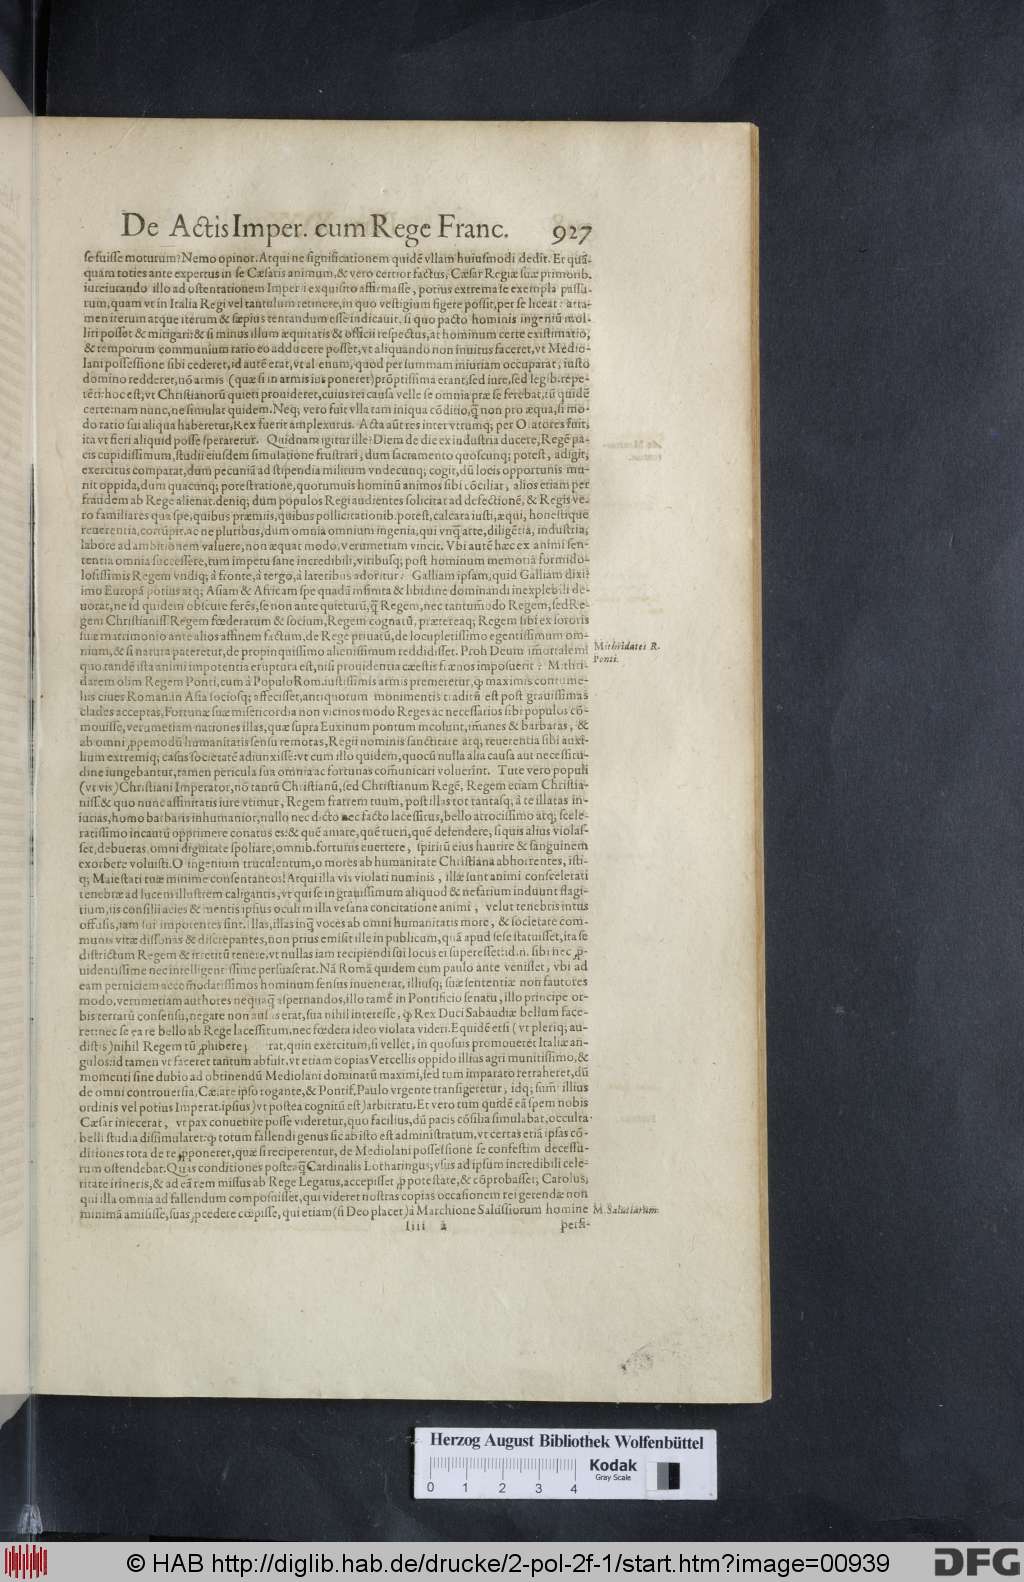 De Actis Imper. cum Rege Franc. 927
se fuisse moturum? Nemo opinor. Atqui ne significationem quidē vllam huiusmodi dedit. Et quā-
quam toties ante expertus in se Cæsaris animum, & vero certior factus, Cæsar Regiæ suæ primorib.
iureiurando illo ad ostentationem Imperii exquisito affirmasse, potius extrema se exempla passu-
rum, quam vt in Italia Regi vel tantulum retinere, in quo vestigium figere possit, per se liceat: atta-
men iterum atque iterum & sæpius tentandum esse indicauit. si quo pacto hominis ingeniū mol-
liri posset & mitigari: & si minus illum æquitatis & officii respectus, at hominum certe existimatio,
& temporum communium ratio eo adducere posset, vt aliquando non inuitus faceret, vt Medio-
lani possessione sibi cederet, id autē erat, vt alienum, quod per summam iniuriam occuparat, iusto
domino redderet, nō armis (quæ si in armis ius poneret) prōptissima erant, sed iure, sed legib. repe-
tēti: hoc est, vt Christianorū quieti prouideret, cuius rei causa velle se omnia præ se ferebat, tū quidē
certe: nam nunc, ne simulat quidem. Neq; vero fuit vlla tam iniqua cōditio, q̄ non pro æqua, si mo-
do ratio sui aliqua haberetur, Rex fuerit amplexurus. Acta autres inter vtrumq; per Oratores fuit,
ita vt fieri aliquid posse speraretur. Quidnam igitur ille? Diem de die ex industria ducere, Regē pa-
cis cupidissimum, studii eiusdem simulatione frustrari, dum sacramento quoscunq; potest, adigit,
exercitus comparat, dum pecuniā ad stipendia militum vndecunq; cogit, dū locis opportunis mu-
nit oppida, dum quacunq; potest ratione, quorumuis hominū animos sibi cōciliat, alios etiam per
fraudem ab Rege alienat. deniq; dum populos Regi audientes solicitat ad defectionē, & Regis ve-
ro familiares qua spe, quibus præmiis, quibus pollicitationib. potest, calcata iusti, æqui, honestique
reuerentia, corrūpit. ac ne pluribus, dum omnia omnium ingenia, qui vnq̄ arte, diligētia, industria,
labore ad ambitionem valuere, non æquat modo, verumetiam vincit. Vbi autē hæc ex animi sen-
tentia omnia successere, tum impetu sane incredibili, viribusq; post hominum memoriā formido-
losissimis Regem vndiq; à fronte, à tergo, à lateribus adoritur? Galliam ipsam, quid Galliam dixi?
imo Europā potius atq; Asiam & Africam spe quadā infinita & libidine dominandi inexplebili de-
uorat, ne id quidem obscure ferēs, se non ante quieturū, q̄ Regem, nec tantummodo Regem, sed Re-
gem Christianiss. Regem fœderatum & socium, Regem cognatū, prætereaq; Regem sibi ex sororis
suæ matrimonio ante alios affinem factum, de Rege priuatū, de locupletissimo egentissimum om-
nium, & si natura pateretur, de propinquissimo alienissimum reddidisset. Proh Deum immortalem!
quo tandē ista animi impotentia eruptura est, nisi prouidentia cælestis frænos imposuerit? Mithri-
datem olim Regem Ponti, cum à Populo Rom. iustissimis armis premeretur, q̄ maximis contume-
liis ciues Roman. in Asia sociosq; affecisset, antiquorum monimentis traditū est post grauissimas
clades acceptas, Fortunæ suæ misericordia non vicinos modo Reges ac necessarios sibi populos cō-
mouisse, verumetiam nationes illas, quæ supra Euxinum pontum incolunt, immanes & barbaras, &
ab omni ꝓpemodū humanitatis sensu remotas, Regii nominis sanctitate atq; reuerentia sibi auxi-
lium extremiq; casus societatē adiunxisse: vt cum illo quidem, quocū nulla alia causa aut necessitu-
dine iungebantur, tamen pericula sua omnia ac fortunas communicari voluerint. Tute vero populi
(vt vis) Christiani Imperator, nō tantū Christianū, sed Christianum Regē, Regem etiam Christia-
niss. & quo nunc affinitatis iure vtimur, Regem fratrem tuum, post illas tot tantasq; à te illatas in-
iurias, homo barbaris inhumanior, nullo nec dicto nec facto lacessitus, bello atrocissimo atq; scele-
ratissimo incautū opprimere conatus es: & quē amare, quē tueri, quē defendere, si quis alius violas-
set, debueras, omni dignitate spoliare, omnib. fortunis euertere, spiritū eius haurire & sanguinem
exorbere voluisti. O ingenium truculentum, o mores ab humanitate Christiana abhorrentes, isti-
q; Maiestati tuæ minime consentaneos! Atqui illa vis violati numinis, illæ sunt animi conscelerati
tenebræ ad lucem illustrem caligantis, vt qui se in grauissimum aliquod & nefarium induunt flagi-
tium, iis consilii acies & mentis ipsius oculi in illa vesana concitatione animi, velut tenebris intus
offusis, iam sui impotentes sint. Illas, illas inq̄ voces ab omni humanitatis more, & societate com-
munis vitæ dissonas & discrepantes, non prius emisit ille in publicum, quā apud se se statuisset, ita se
districtum Regem & irretitū tenere, vt nullas iam recipiendi sui locus ei superesset: id. n. sibi nec ꝓ-
uidentissime nec intelligentissime persuaserat. Nā Romā quidem cum paulo ante venisset, vbi ad
eam perniciem accommodatissimos hominum sensus inuenerat, illiusq; suæ sententiæ non fautores
modo, verumetiam authores nequaq̄ aspernandos, illo tamē in Pontificio senatu, illo principe or-
bis terrarū consensu, negare non ausus erat, sua nihil interesse, q̄ Rex Duci Sabaudiæ bellum face-
ret: nec se ea re bello ab Rege lacessitum, nec fœdera ideo violata videri. Equidē etsi (vt pleriq; au-
distis) nihil Regem tū ꝓhibere rat, quin exercitum, si vellet, in quosuis promoueret Italiæ an-
gulos: id tamen vt faceret tantum abfuit, vt etiam copias Vercellis oppido illius agri munitissimo, &
momenti sine dubio ad obtinendū Mediolani dominatū maximi, sed tum imparato retraheret, dū
de omni controuersia, Cæsare ipso rogante, & Pontif. Paulo vrgente transigeretur, idq; sum̄ illius
ordinis vel potius Imperat. ipsius) vt postea cognitū est) arbitratu. Et vero tum quidē eā spem nobis
Cæsar iniecerat, vt pax conuenire posse videretur, quo facilius, dū pacis cōsilia simulabat, occulta
belli studia dissimularet: q̄ totum fallendi genus sic ab isto est administratum, vt certas etiā ipsas cō-
ditiones tota de re ꝓponeret, quæ si reciperentur, de Mediolani possessione se confestim decessu-
rum ostendebat. Quas conditiones posteaq̄ Cardinalis Lotharingus, vsus ad ipsum incredibili cele-
ritate itineris, & ad eā rem missus ab Rege Legatus, accepisset ꝓ potestate, & cōprobasset, Carolus,
qui illa omnia ad fallendum composuisset, qui videret nostras copias occasionem rei gerendæ non
minimā amisisse, suas ꝓcedere cœpisse, qui etiam (si Deo placet) à Marchione Salussiorum homine
Iiii 2 perfi-
Mithridates R.
Ponti.
M. Salutiarum.
Herzog August Bibliothek Wolfenbüttel
0 1 2 3 4
Kodak
Gray Scale
© HAB http://diglib.hab.de/drucke/2-pol-2f-1/start.htm?image=00939
DFG